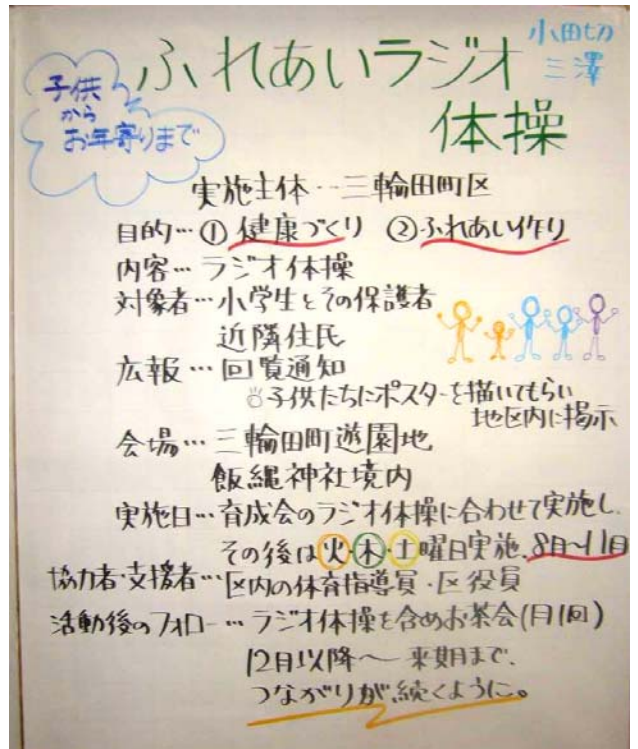 ふれあいラジオ
体操
小田切
三澤
子供
から
お年寄りまで
実施主体‥三輪田町区
目的…①健康づくり ②ふれあい作り
内容…ラジオ体操
対象者…小学生とその保護者
近隣住民
広報…回覧通知
子供たちにポスターを描いてもらい
地区内に掲示
会場…三輪田町遊園地
飯縄神社境内
実施日…育成会のラジオ体操に合わせて実施し、
その後は火・木・土曜日実施、8月〜11月
協力者・支援者…区内の体育指導員・区役員
活動後のフォロー…ラジオ体操を含めお茶会(月1回)
12月以降〜来期まで、
つながりが続くように。